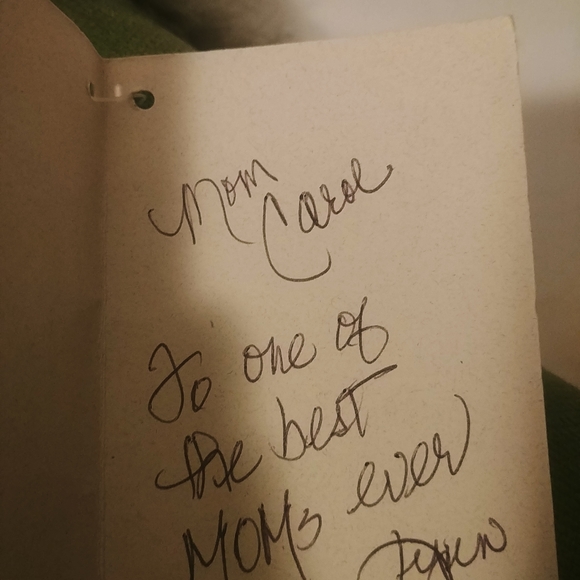 Mom
Carol
To one of
the best
MOMs ever